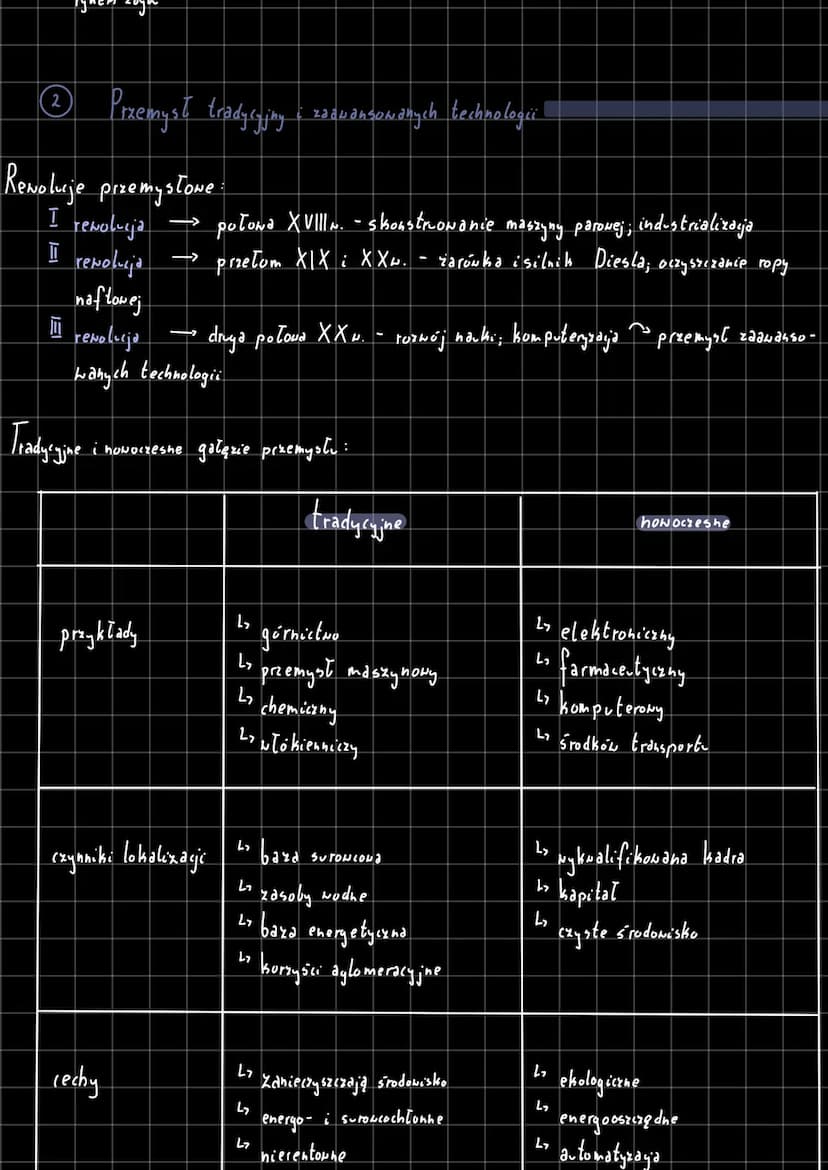 ② Przemysł tradycyjny i zaawansowanych technologii
Rewolucje przemysłowe:
I rewolucja → połowa XVIII w. - skonstruowanie maszyny parowej; industrializacja
II rewolucja → przełom XIX i XX w. - żarówka i silnik Diesla; oczyszczanie ropy
naftowej
III rewolucja → druga połowa XX w. - rozwój nauki; komputeryzacja ↷ przemysł zaawanso-
wanych technologii
Tradycyjne i nowoczesne gałęzie przemysłu:
tradycyjne nowoczesne
przykłady
↳ górnictwo
↳ przemysł maszynowy
↳ chemiczny
↳ włókienniczy
↳ elektroniczny
↳ farmaceutyczny
↳ komputerowy
↳ środków transportu
czynniki lokalizacji
↳ baza surowcowa
↳ zasoby wodne
↳ baza energetyczna
↳ korzyści aglomeracyjne
↳ wykwalifikowana kadra
↳ kapitał
↳ czyste środowisko
cechy
↳ zanieczyszczają środowisko
↳ energo- i surowcochłonne
↳ nierentowne
↳ ekologiczne
↳ energooszczędne
↳ automatyzacja